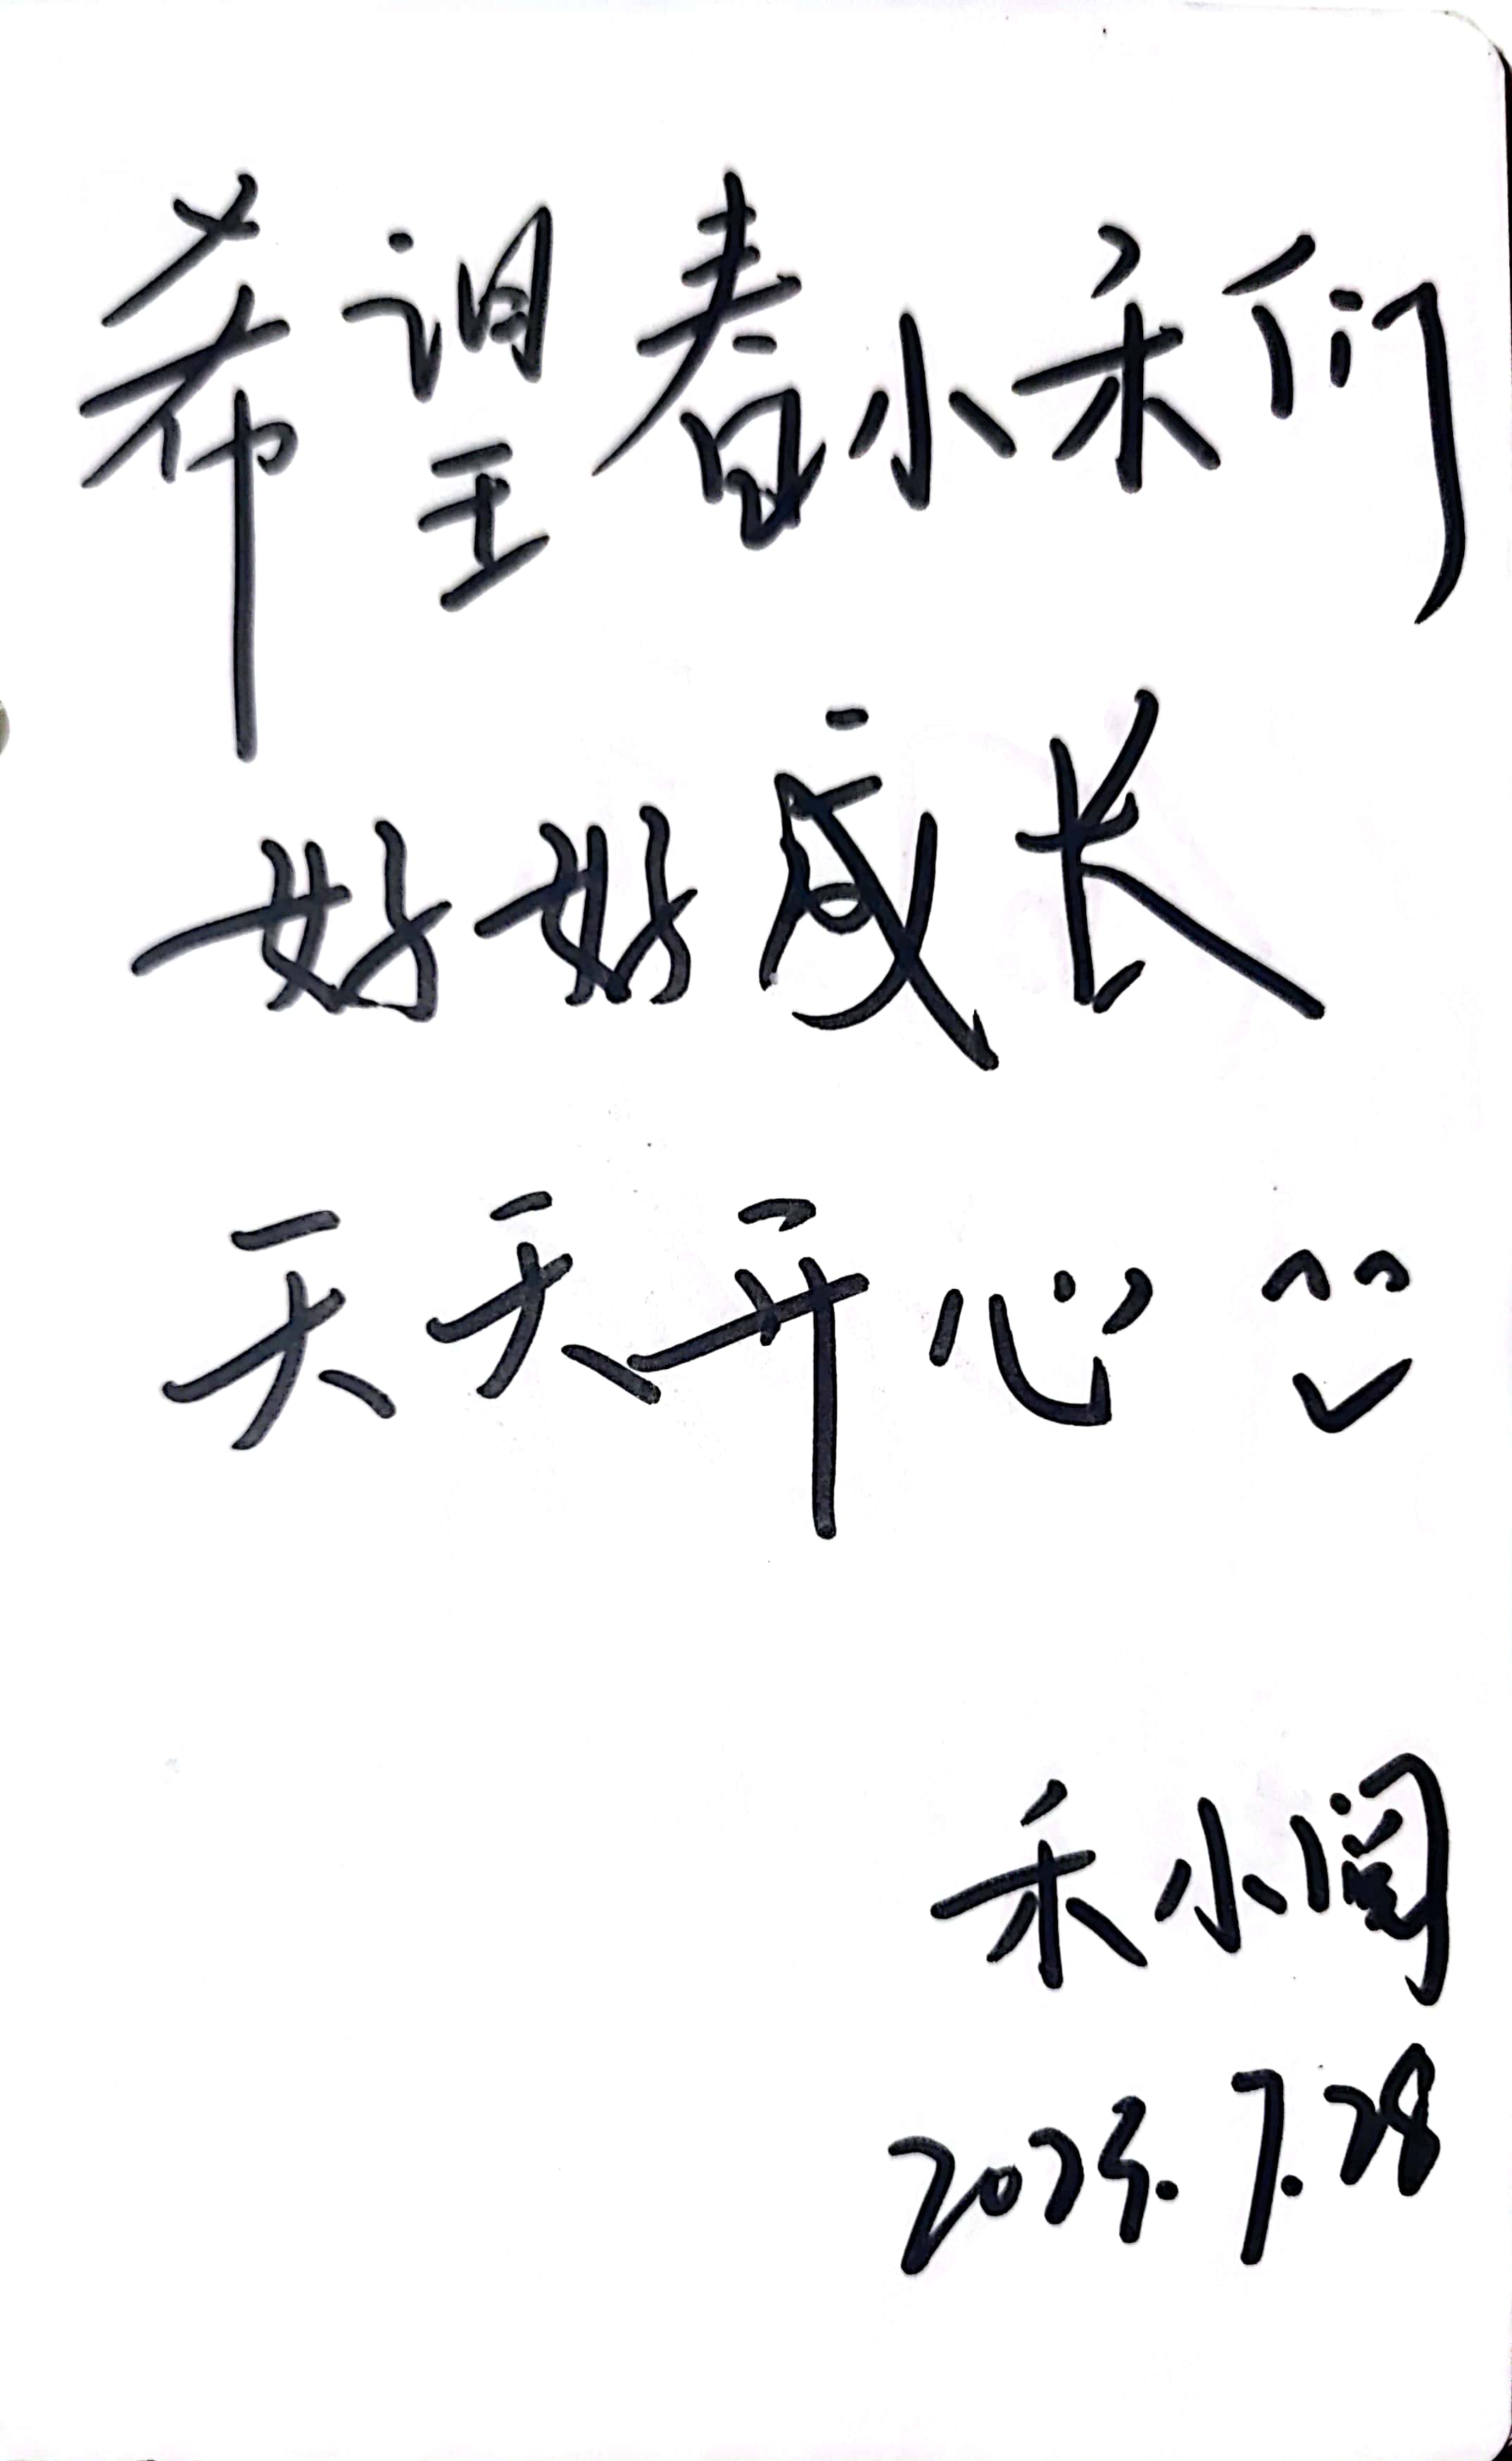 希望春小禾们
好好成长
天天开心
禾小阅
2025.7.28